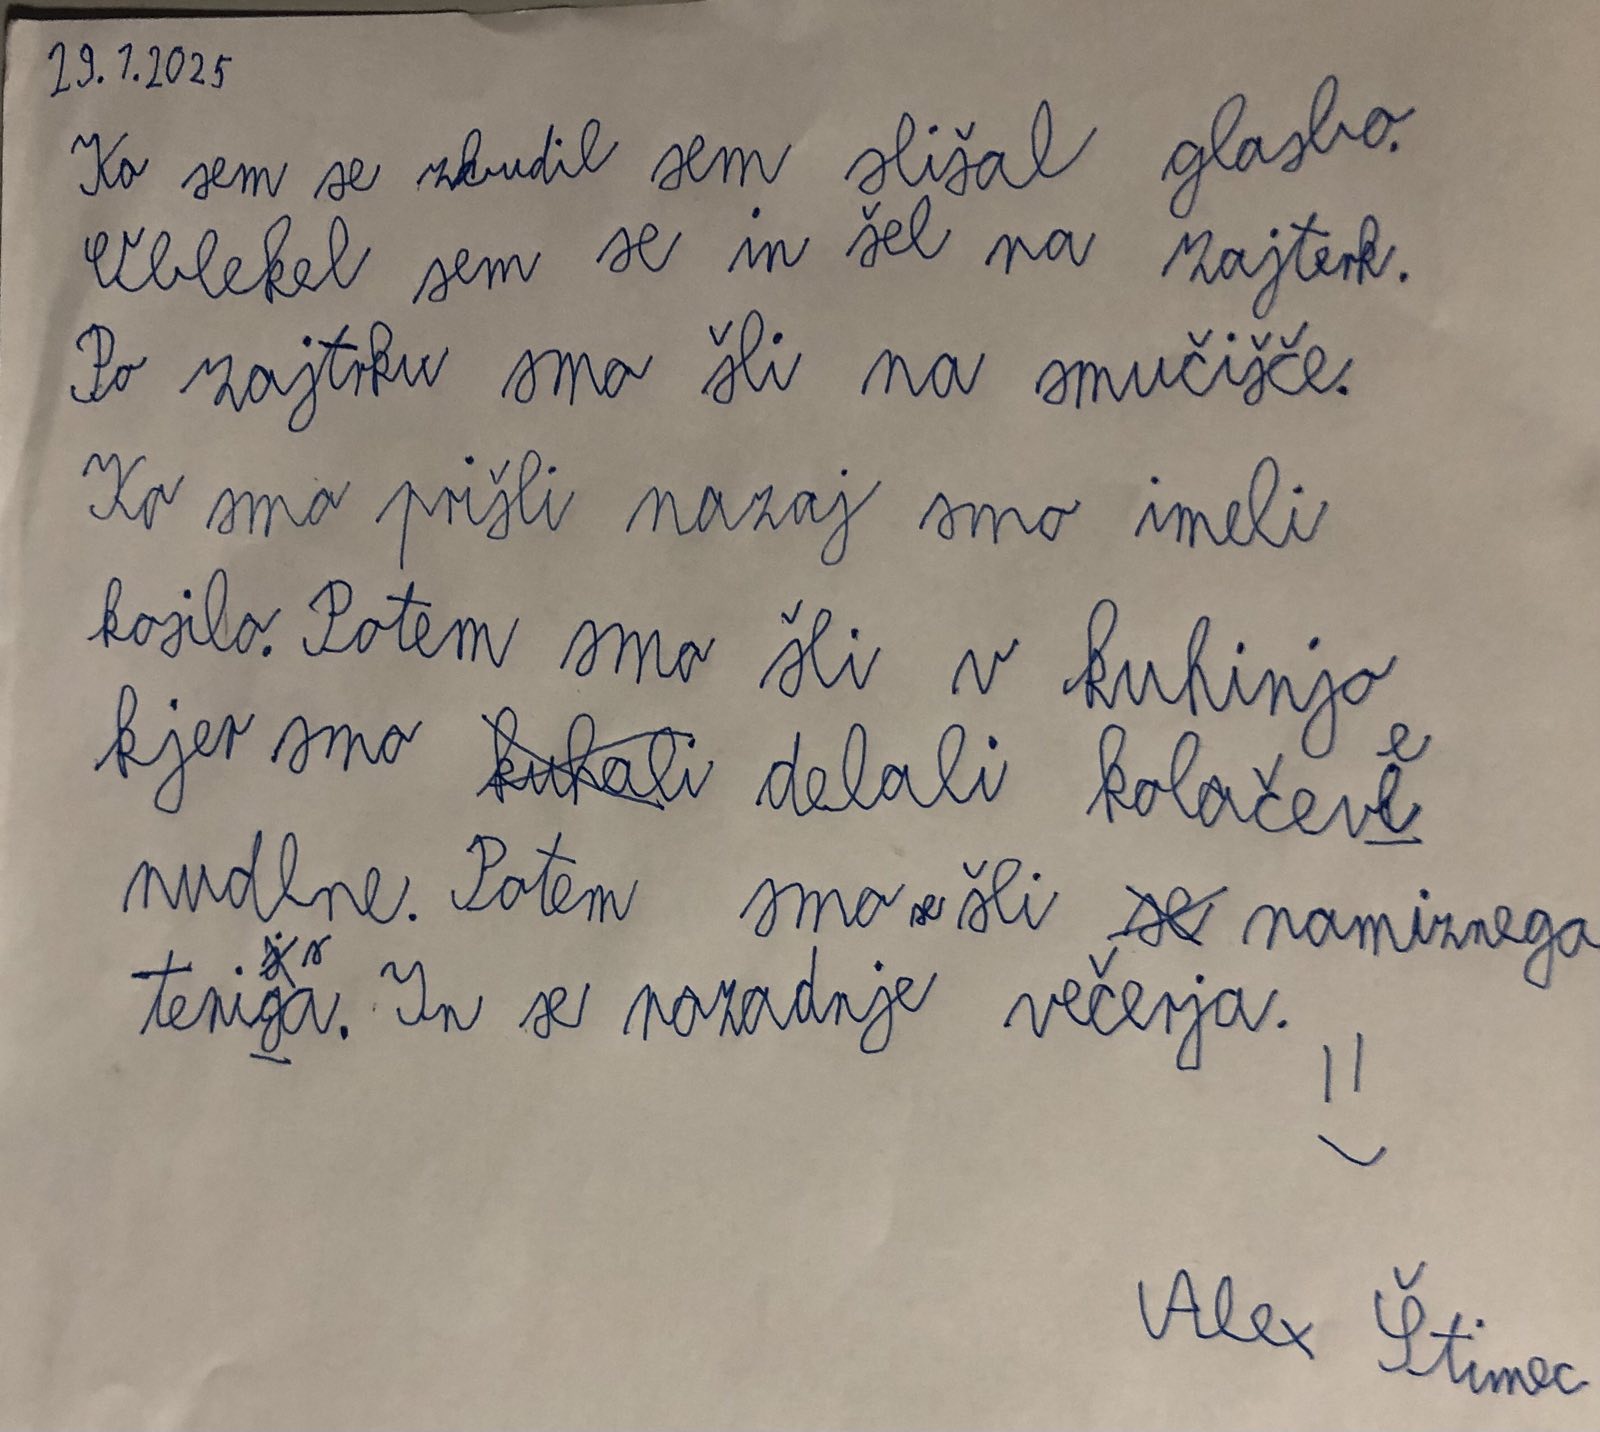 29.1.2025
Ko sem se zbudil sem slišal glasbo.
Oblekel sem se in šel na zajterk.
Po zajtrku smo šli na smučišče.
Ko smo prišli nazaj smo imeli
kosilo. Potem smo šli v kuhinjo
kjer smo kuhali delali kolačeve
nudlne. Potem smo se šli se namiznega
tenisa. In se nazadnje večerja.
Alex Štimec